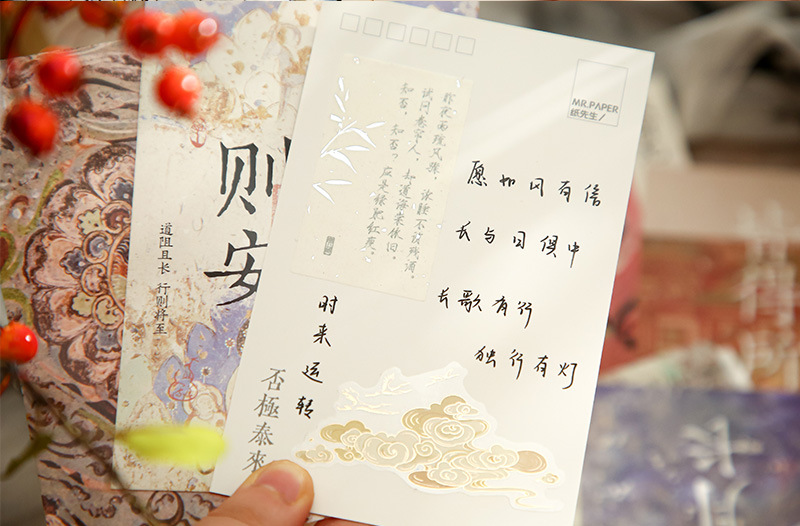 MR.PAPER
纸先生/
昨夜雨疏风骤,浓睡不消残酒。
试问卷帘人,却道海棠依旧。
知否,知否?应是绿肥红瘦。
愿如风有信
长与日俱中
长歌有行
独行有灯
时来运转
否極泰來
则安
道阻且长 行则将至